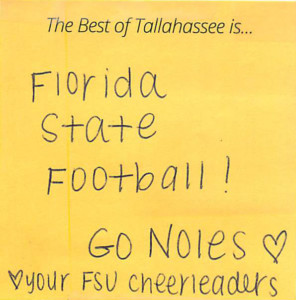 The Best of Tallahassee is...
Florida
State
Football!
GO NOles ♡
♡your FSU cheerleaders